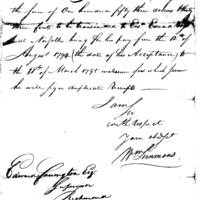 the sum of One hundred fifty three dollars thirty
three Cents to be transmitted to
Norfolk being for his pay from the 12 of
August 1794 (the date of his Acceptance) to
the 31st of March 1795 inclusive for which sum
he will sign duplicate receipts
I am
Sir
with respect
your obedt
Wm Simmons
Edward Carrington Esqr
Supervisor
Richmond